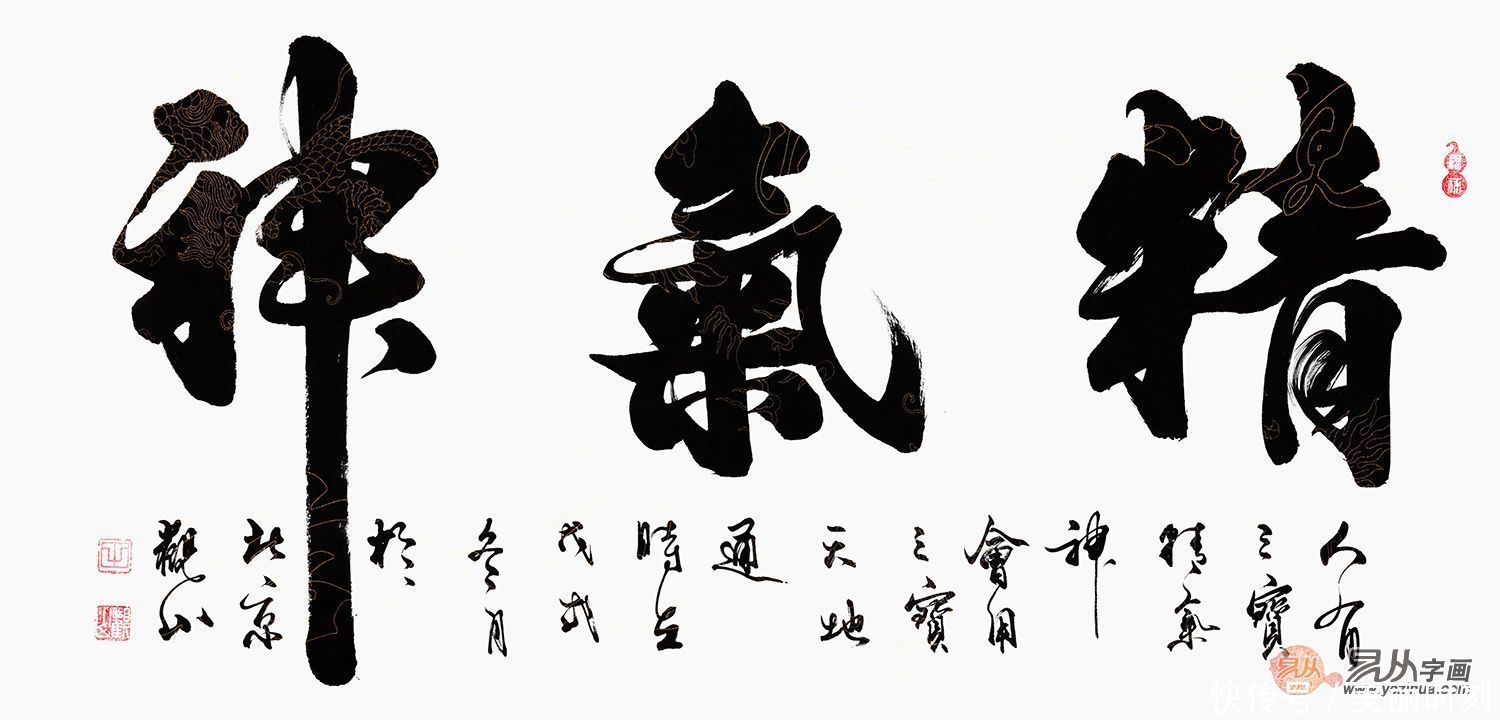 精氣神
人有
三寶
精氣
神
會用
三寶
天地
通
時在
戊戌
冬月
於
北京
觀山
易从字画
www.yczihua.com
快传号 / 美丽时刻